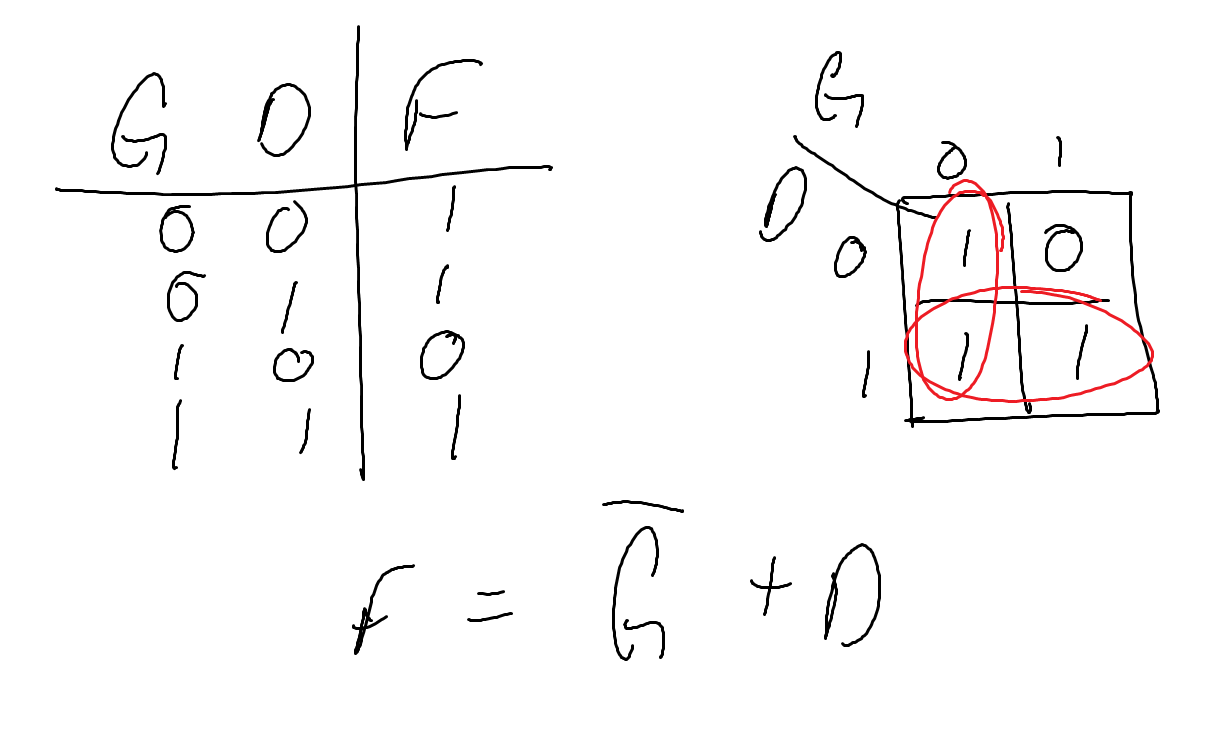 G D F
0 0 1
0 1 1
1 0 0
1 1 1
G
0 1
D
0 1 0
1 1 1
F = G̅ + D